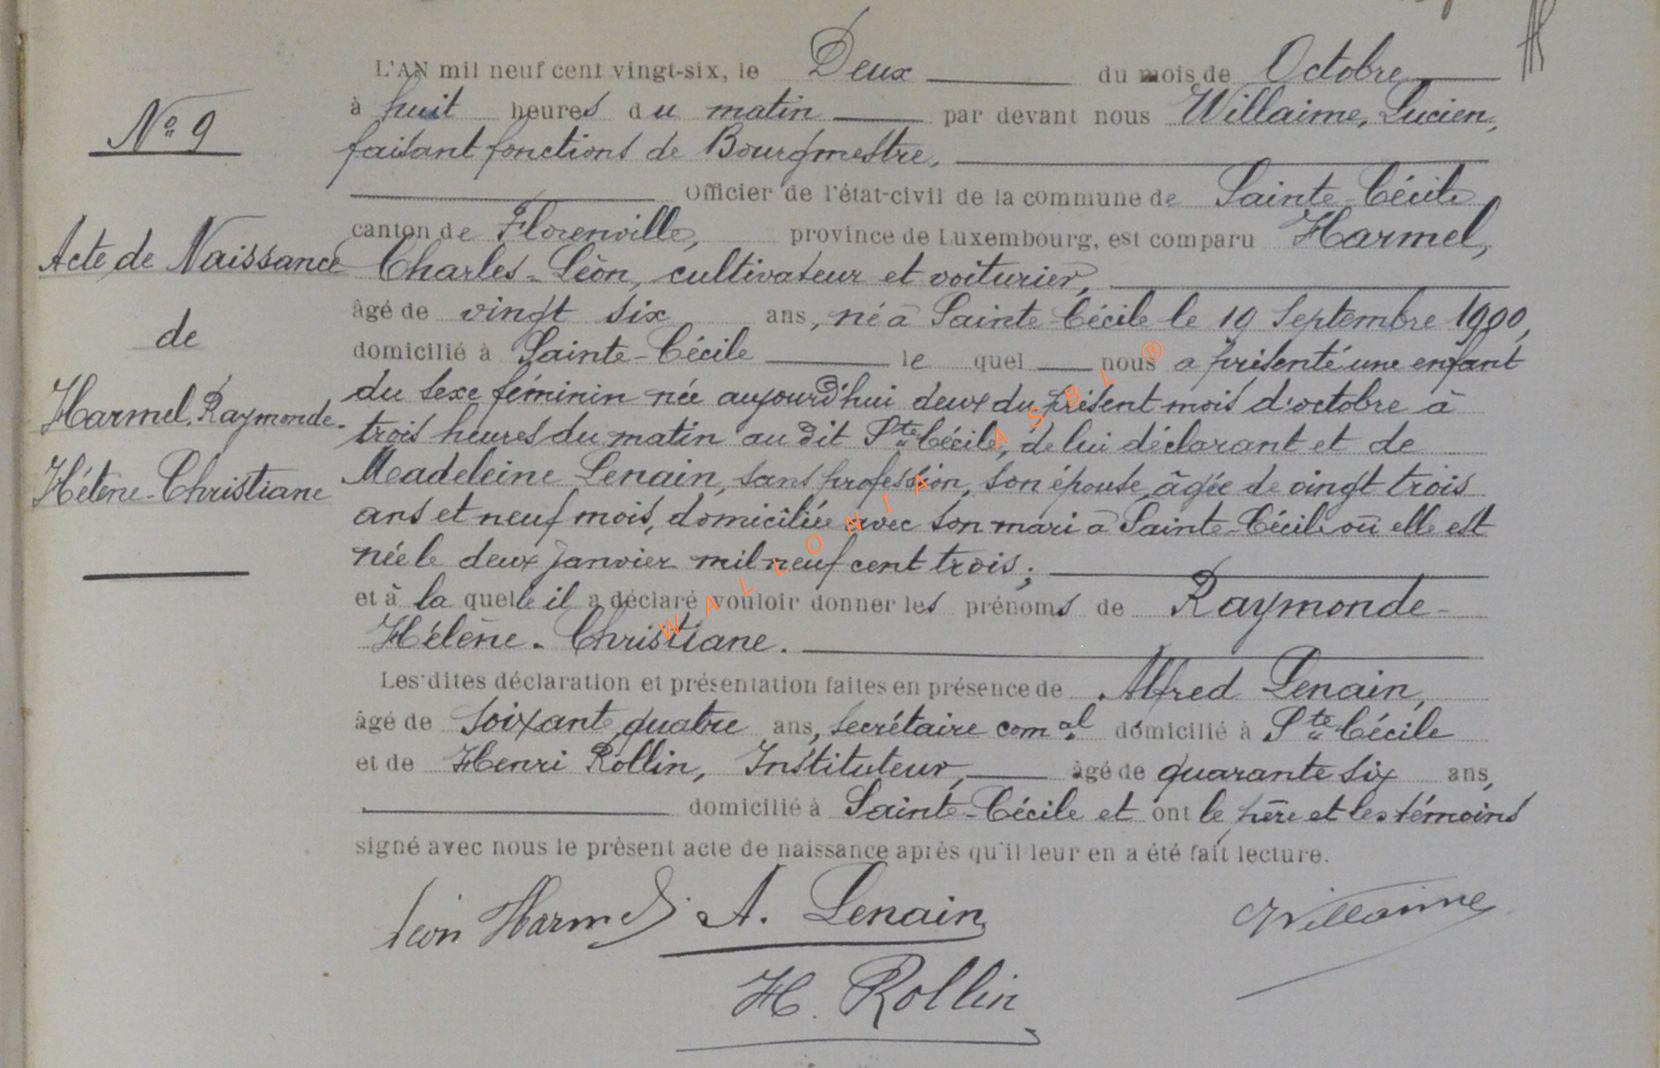 L'AN mil neuf cent vingt-six, le Deux du mois de Octobre
à huit heures du matin par devant nous Willaime, Lucien,
faisant fonctions de Bourgmestre,
Officier de l'état-civil de la commune de Sainte-Cécile
canton de Florenville, province de Luxembourg, est comparu Harmel,
Charles-Léon, cultivateur et voiturier,
âgé de vingt six ans, né à Sainte-Cécile le 19 Septembre 1900,
domicilié à Sainte-Cécile le quel nous a présenté une enfant
du sexe féminin née aujourd'hui deux du présent mois d'octobre à
trois heures du matin au dit Ste Cécile, de lui déclarant et de
Madeleine Lenain, sans profession, son épouse, âgée de vingt trois
ans et neuf mois, domiciliée avec son mari à Sainte-Cécile où elle est
née le deux janvier mil neuf cent trois;
et à la quelle il a déclaré vouloir donner les prénoms de Raymonde-
Hélène-Christiane.
Les dites déclaration et présentation faites en présence de Alfred Lenain,
âgé de soixante quatre ans, secrétaire comal domicilié à Ste Cécile
et de Henri Rollin, Instituteur, âgé de quarante six ans,
domicilié à Sainte-Cécile et ont le père et les témoins
signé avec nous le présent acte de naissance après qu'il leur en a été fait lecture.
Léon Harmel A. Lenain Willaime
H. Rollin
No 9
Acte de Naissance
de
Harmel, Raymonde-
Hélène-Christiane
WALLONIA ASBL ®